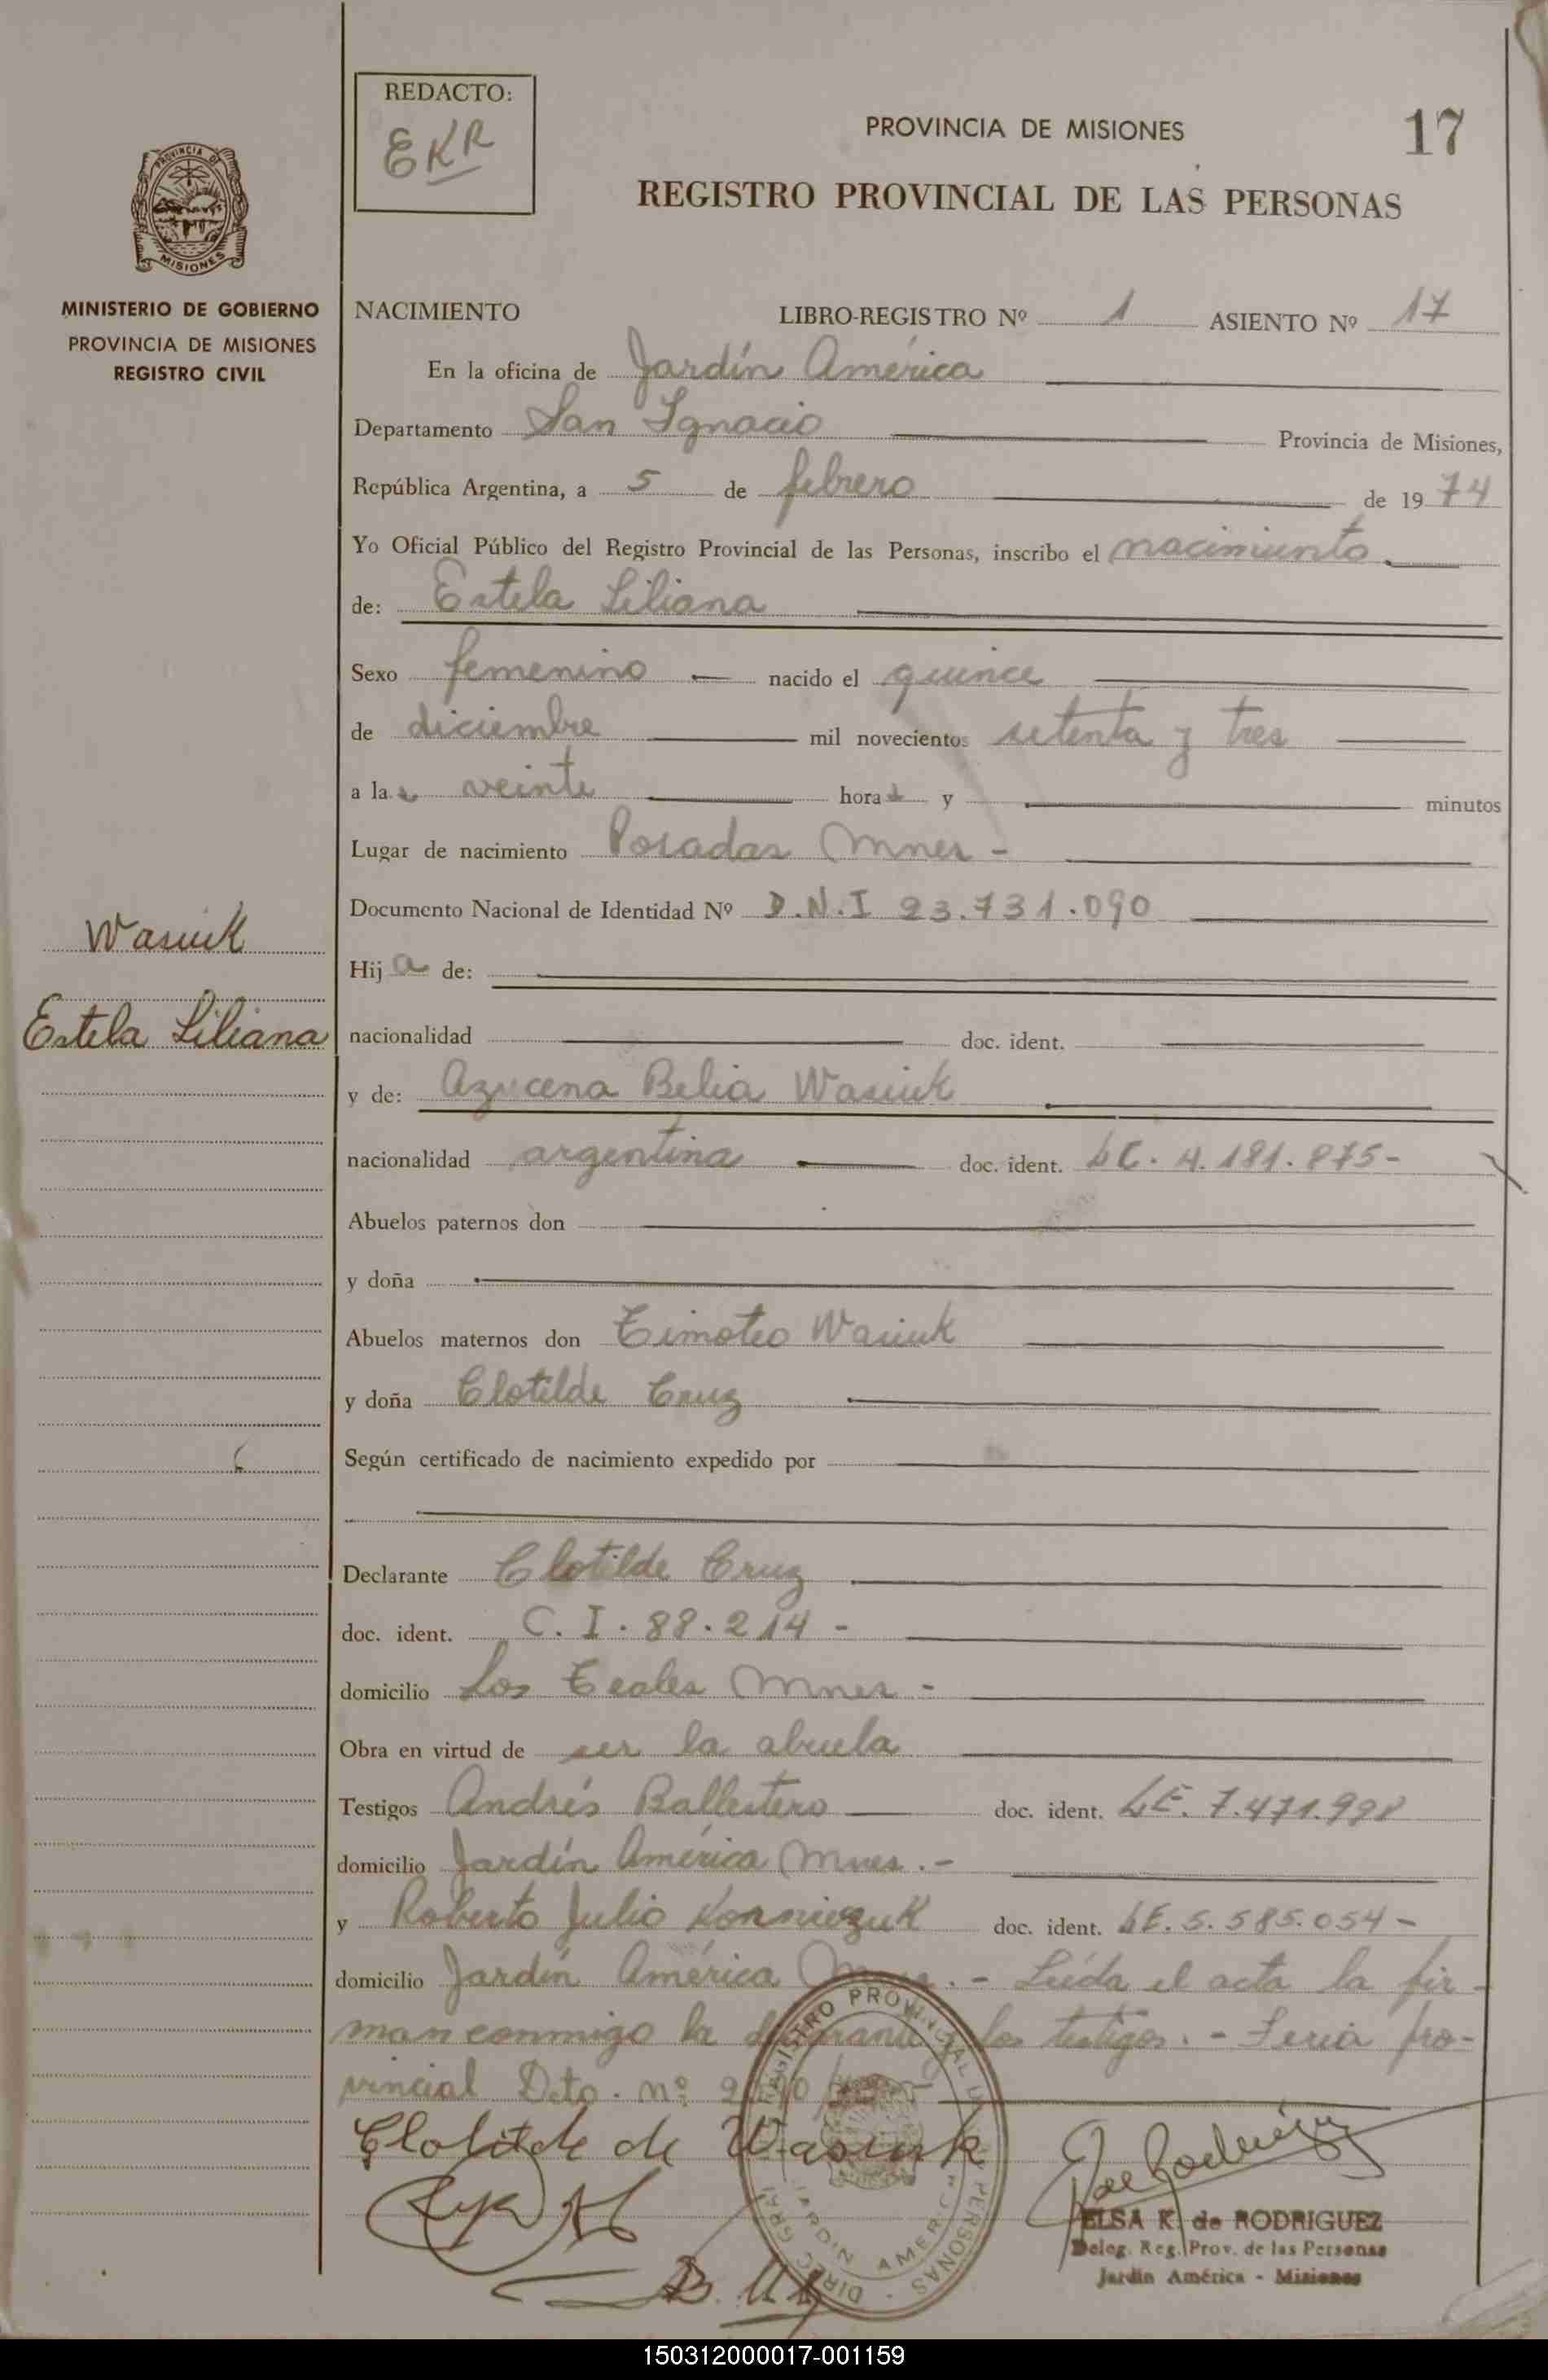 REDACTO:
EKR
PROVINCIA DE MISIONES
17
REGISTRO PROVINCIAL DE LAS PERSONAS
PROVINCIA DE
MISIONES
MINISTERIO DE GOBIERNO
PROVINCIA DE MISIONES
REGISTRO CIVIL
NACIMIENTO LIBRO-REGISTRO Nº 1 ASIENTO Nº 17
En la oficina de Jardín América
Departamento San Ignacio Provincia de Misiones,
República Argentina, a 5 de febrero de 1974
Yo Oficial Público del Registro Provincial de las Personas, inscribo el nacimiento
de: Estela Liliana
Sexo femenino nacido el quince
de diciembre mil novecientos setenta y tres
a las veinte horas y minutos
Lugar de nacimiento Posadas Mnes -
Documento Nacional de Identidad Nº D.N.I 23.731.090
Wasiuk
Hija de:
Estela Liliana
nacionalidad doc. ident.
y de: Azucena Belia Wasiuk
nacionalidad argentina doc. ident. LC. 4.181.875-
Abuelos paternos don
y doña
Abuelos maternos don Timoteo Wasiuk
y doña Clotilde Cruz
Según certificado de nacimiento expedido por
Declarante Clotilde Cruz
doc. ident. C. I. 88.214 -
domicilio Los Teales Mnes -
Obra en virtud de ser la abuela
Testigos Andrés Ballestero doc. ident. LE. 7.471.998
domicilio Jardín América Mnes. -
y Roberto Julio Kornieczuk doc. ident. LE. 5.585.054 -
domicilio Jardín América Mnes. - Leída el acta la fir-
man conmigo la declarante y los testigos. - Feria pro-
vincial Dto. nº
Clotilde de Wasiuk
REGISTRO PROVINCIAL DE LAS PERSONAS
DIREC. GRAL.
JARDIN AMERICA
ELSA K. de RODRIGUEZ
Deleg. Reg. Prov. de las Personas
Jardín América - Misiones
150312000017-001159